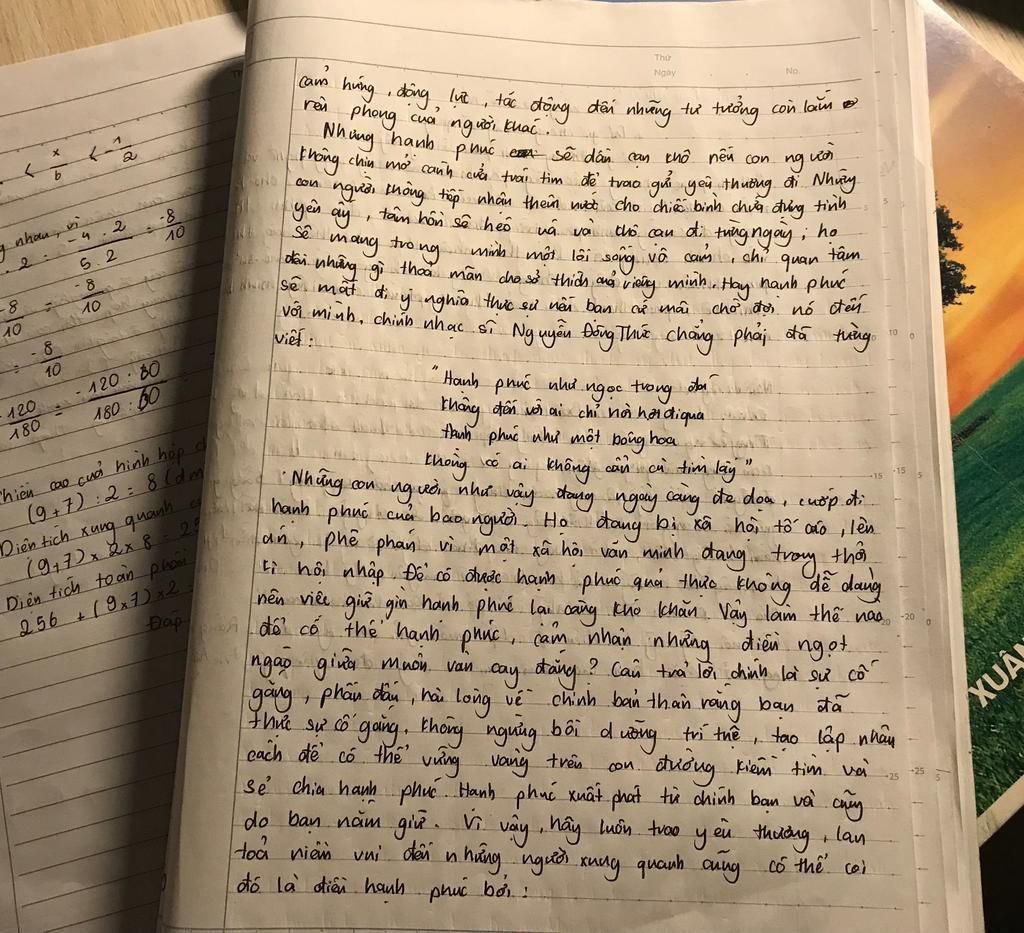 Thứ
Ngày No.
cảm hứng, động lực, tác động đến những tư tưởng còn lấm
rêu phong của người khác.
Nhưng hạnh phúc sẽ dần cạn khô nếu con người
không chịu mở cánh cửa trái tim để trao gửi yêu thương đi. Những
con người không tiếp nhận thêm nước cho chiếc bình chứa đựng tình
yêu ấy, tâm hồn sẽ héo úa và khô cạn đi từng ngày; họ
sẽ mang trong mình một lối sống vô cảm, chỉ quan tâm
đến những gì thoả mãn cho sở thích của riêng mình. Hay hạnh phúc
sẽ mất đi ý nghĩa thực sự nếu bạn cứ mãi chờ đợi nó đến
với mình. Chính nhạc sĩ Nguyễn Đông Thức chẳng phải đã từng
viết:
"Hạnh phúc như ngọc trong đá
Không đến với ai chỉ nói hời đi qua
Hạnh phúc như một bông hoa
Không có ai không cần cù tìm lấy"
Những con người như vậy đang ngày càng đe doạ, cướp đi
hạnh phúc của bao người. Họ đang bị xã hội tố cáo, lên
án, phê phán vì một xã hội văn minh đang trong thời
kì hội nhập. Để có được hạnh phúc quả thực không dễ dàng
nên việc giữ gìn hạnh phúc lại càng khó khăn. Vậy làm thế nào
để có thể hạnh phúc, cảm nhận những điều ngọt
ngào giữa muôn vàn cay đắng? Câu trả lời chính là sự cố
gắng, phấn đấu, hài lòng về chính bản thân rằng bạn đã
thực sự cố gắng, không ngừng bồi dưỡng trí tuệ, tạo lập nhân
cách để có thể vững vàng trên con đường kiếm tìm và
sẻ chia hạnh phúc. Hạnh phúc xuất phát từ chính bạn và cũng
do bạn nắm giữ. Vì vậy, hãy luôn trao yêu thương, lan
toả niềm vui đến những người xung quanh cũng có thể coi
đó là điều hạnh phúc bởi:
< x/6 < -1/2
nhau, vì
. 2 = -4 . 2 / 5 . 2 = -8/10
-8/10 = -8/10
= -8/10
-120/180 = -120 : 60 / 180 : 60
Chiều cao của hình hộp
(9+7) : 2 = 8 (dm
Diện tích xung quanh
(9+7) x 2 x 8 = 25
Diện tích toàn phần
256 + (9x7) x 2
Đáp
XUÂN